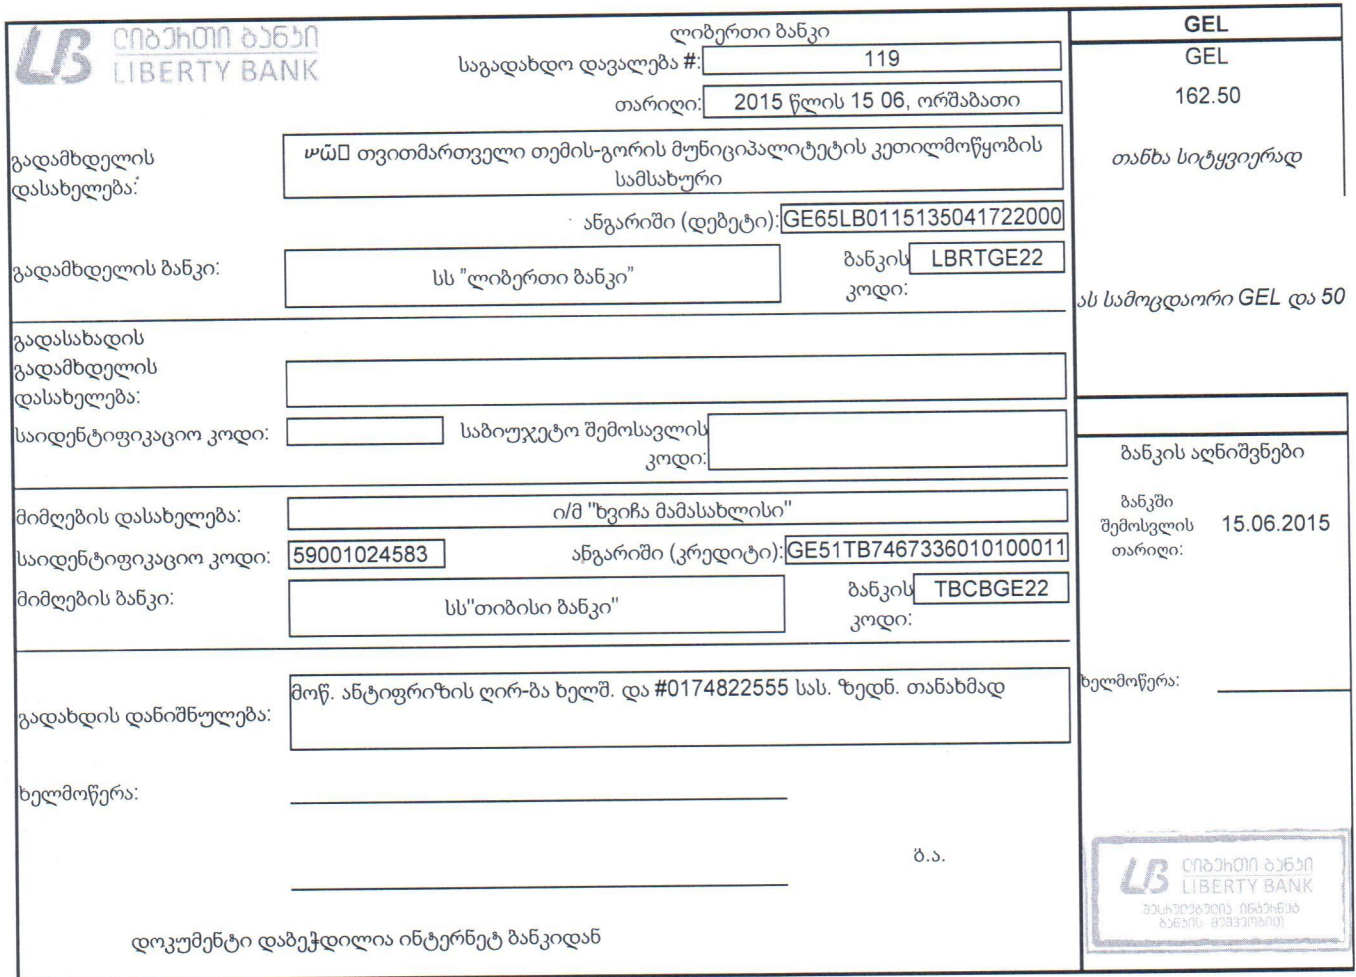 ლიბერთი ბანკი
LIBERTY BANK
ლიბერთი ბანკი
საგადახდო დავალება #: 119
თარიღი: 2015 წლის 15 06, ორშაბათი
გადამხდელის
დასახელება:
თვითმართველი თემის-გორის მუნიციპალიტეტის კეთილმოწყობის
სამსახური
ანგარიში (დებეტი): GE65LB0115135041722000
გადამხდელის ბანკი: სს "ლიბერთი ბანკი"
ბანკის LBRTGE22
კოდი:
გადასახადის
გადამხდელის
დასახელება:
საიდენტიფიკაციო კოდი: საბიუჯეტო შემოსავლის
კოდი:
მიმღების დასახელება: ი/მ "ხვიჩა მამასახლისი"
საიდენტიფიკაციო კოდი: 59001024583 ანგარიში (კრედიტი): GE51TB7467336010100011
მიმღების ბანკი: სს"თიბისი ბანკი"
ბანკის TBCBGE22
კოდი:
გადახდის დანიშნულება: მოწ. ანტიფრიზის ღირ-ბა ხელშ. და #0174822555 სას. ზედნ. თანახმად
ხელმოწერა:
ბ.ა.
დოკუმენტი დაბეჭდილია ინტერნეტ ბანკიდან
GEL
GEL
162.50
თანხა სიტყვიერად
ას სამოცდაორი GEL და 50
ბანკის აღნიშვნები
ბანკში
შემოსვლის 15.06.2015
თარიღი:
ხელმოწერა:
ლიბერთი ბანკი
LIBERTY BANK
შესრულებულია ინტერნეტ
ბანკის მეშვეობით